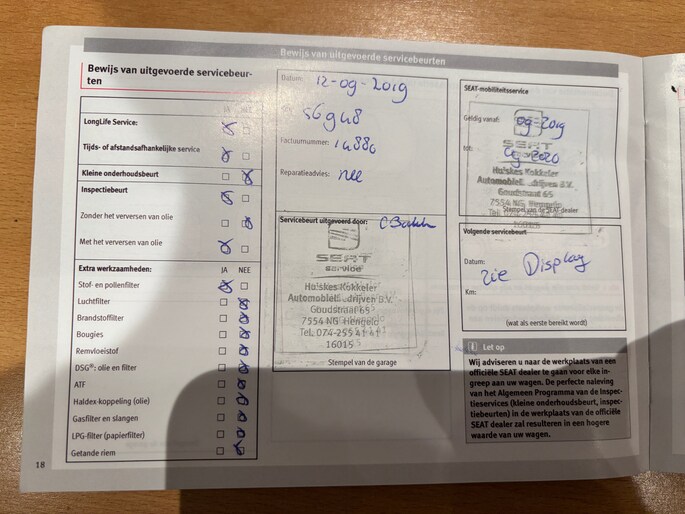 Bewijs van uitgevoerde servicebeurten
Bewijs van uitgevoerde servicebeur-
ten
JA NEE
LongLife Service:
Tijds- of afstandsafhankelijke service
Kleine onderhoudsbeurt
Inspectiebeurt
Zonder het verversen van olie
Met het verversen van olie
Extra werkzaamheden: JA NEE
Stof- en pollenfilter
Luchtfilter
Brandstoffilter
Bougies
Remvloeistof
DSG®: olie en filter
ATF
Haldex-koppeling (olie)
Gasfilter en slangen
LPG-filter (papierfilter)
Getande riem
18
Datum: 12-09-2019
56948
Factuurnummer: 14880
Reparatieadvies: nee
Servicebeurt uitgevoerd door:
SEAT
service
Huiskes Kokkeler
Automobielbedrijven B.V.
Goudstraat 65
7554 NG Hengelo
Tel. 074-255 41 41
16015
Stempel van de garage
SEAT-mobiliteitsservice
Geldig vanaf: 09-2019
tot: 09-2020
SEAT
Huiskes Kokkeler
Automobielbedrijven B.V.
Goudstraat 65
7554 NG Hengelo
Stempel van de SEAT-dealer
16015
Volgende servicebeurt
Datum: zie Display
Km:
(wat als eerste bereikt wordt)
i Let op
Wij adviseren u naar de werkplaats van een
officiële SEAT dealer te gaan voor elke in-
greep aan uw wagen. De perfecte naleving
van het Algemeen Programma van de Inspec-
tieservices (kleine onderhoudsbeurt, inspec-
tiebeurten) in de werkplaats van de officiële
SEAT dealer zal resulteren in een hogere
waarde van uw wagen.